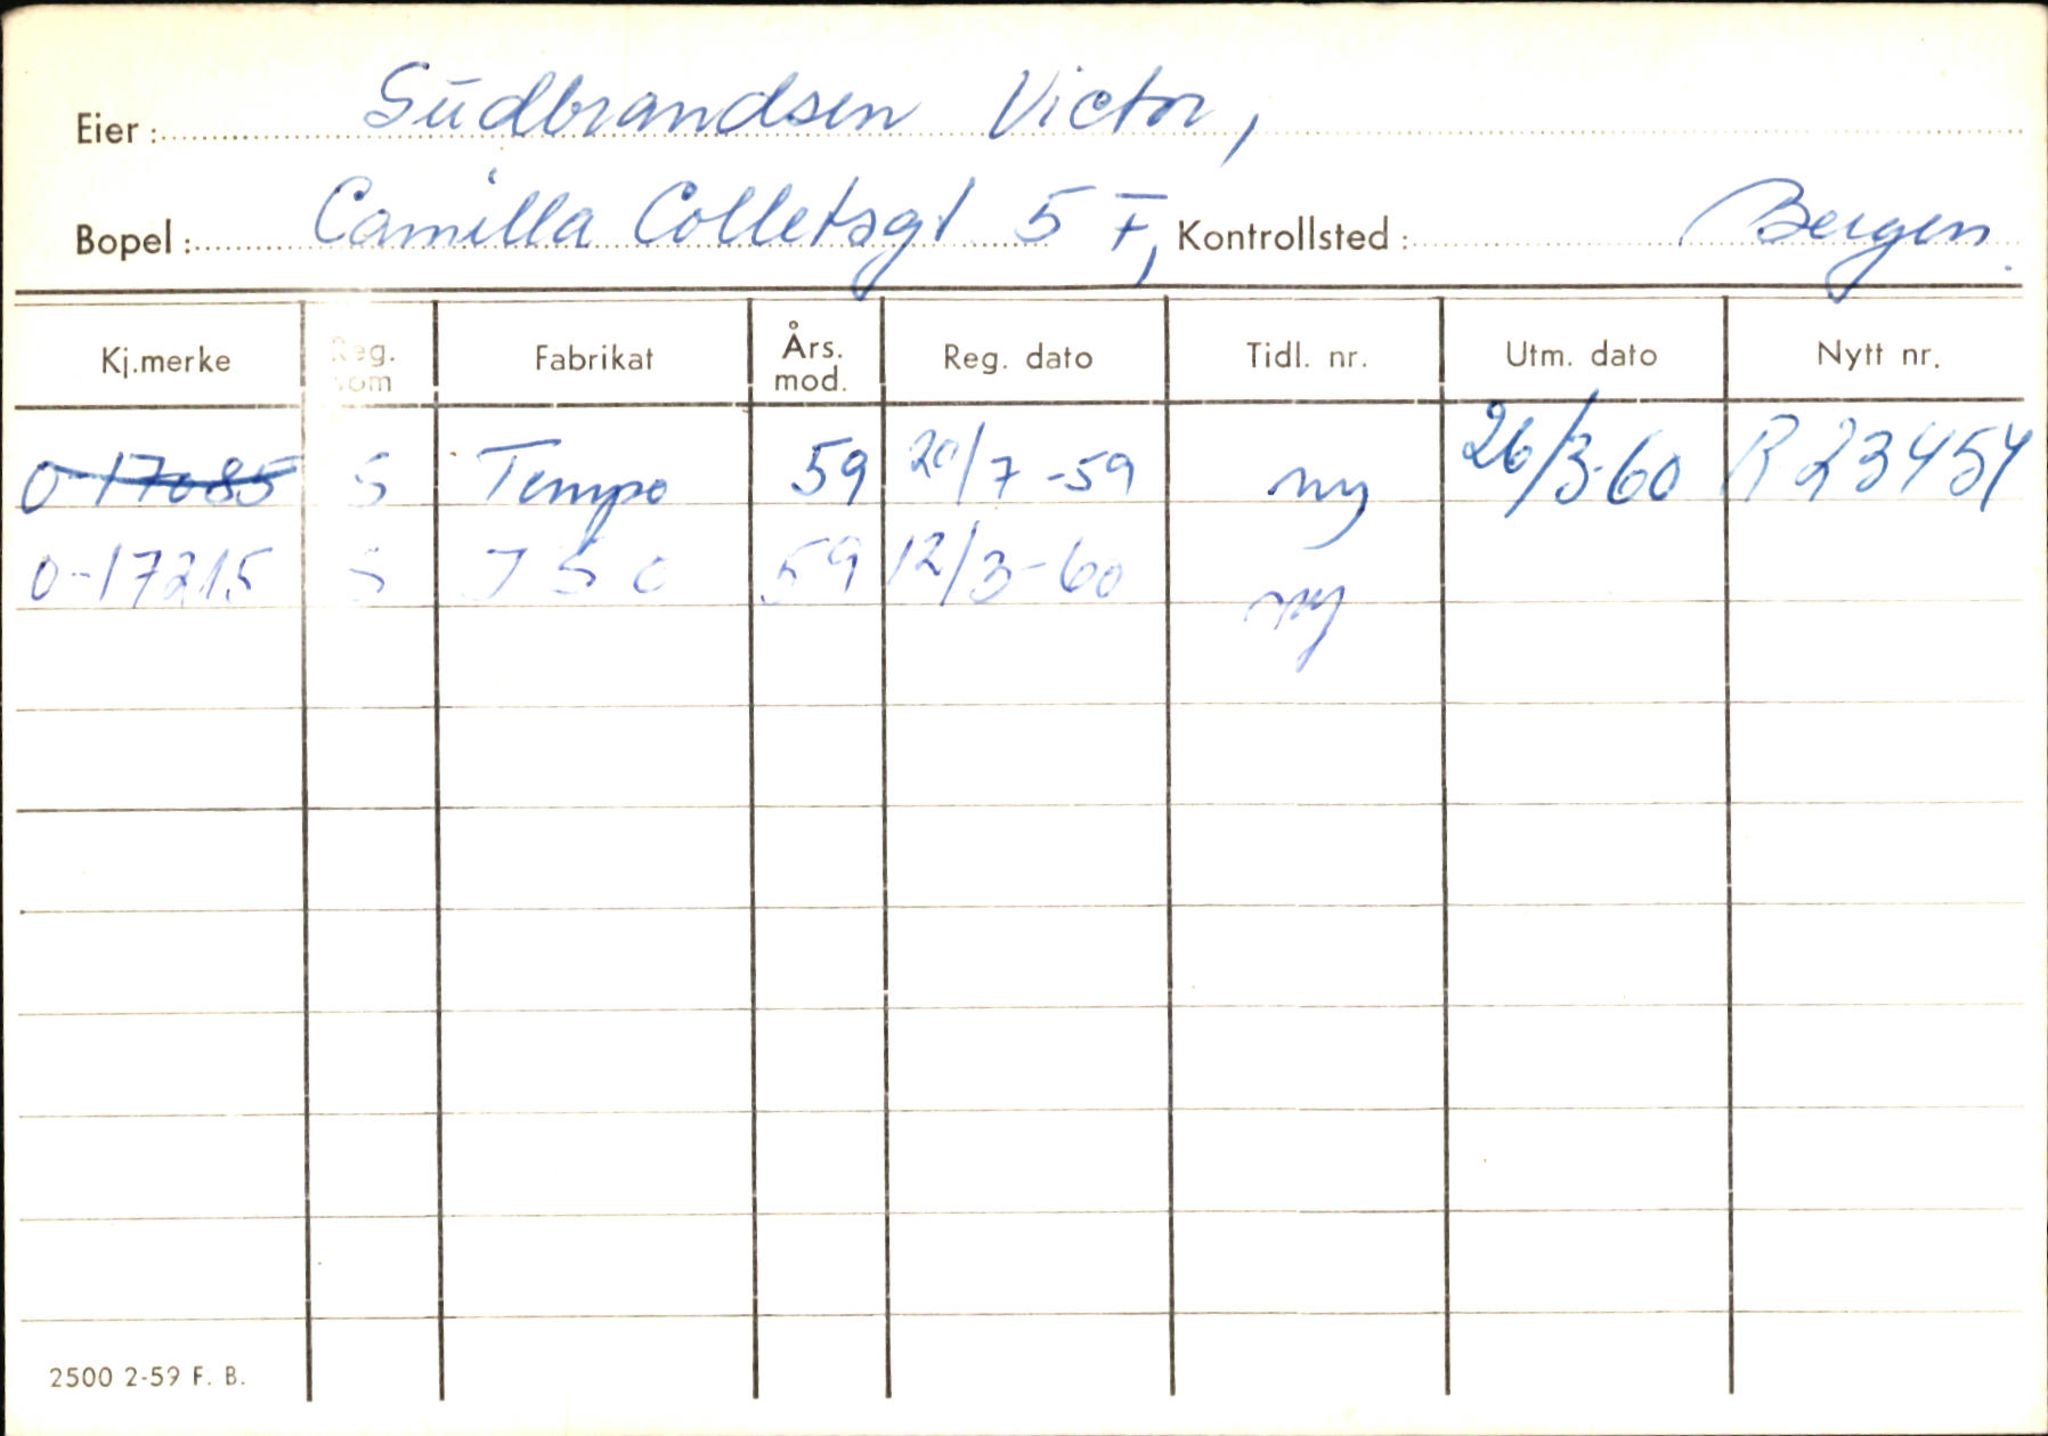 Eier: Gudbrandsen Victor,
Bopel: Camilla Colletsgt 5 I, Kontrollsted: Bergen.
Kj.merke Reg. som Fabrikat Års. mod. Reg. dato Tidl. nr. Utm. dato Nytt nr.
O-17085 S Tempo 59 20/7-59 ny 26/3-60 R 23454
O-17215 S J S C 59 12/3-60 ny
2500 2-59 F. B.